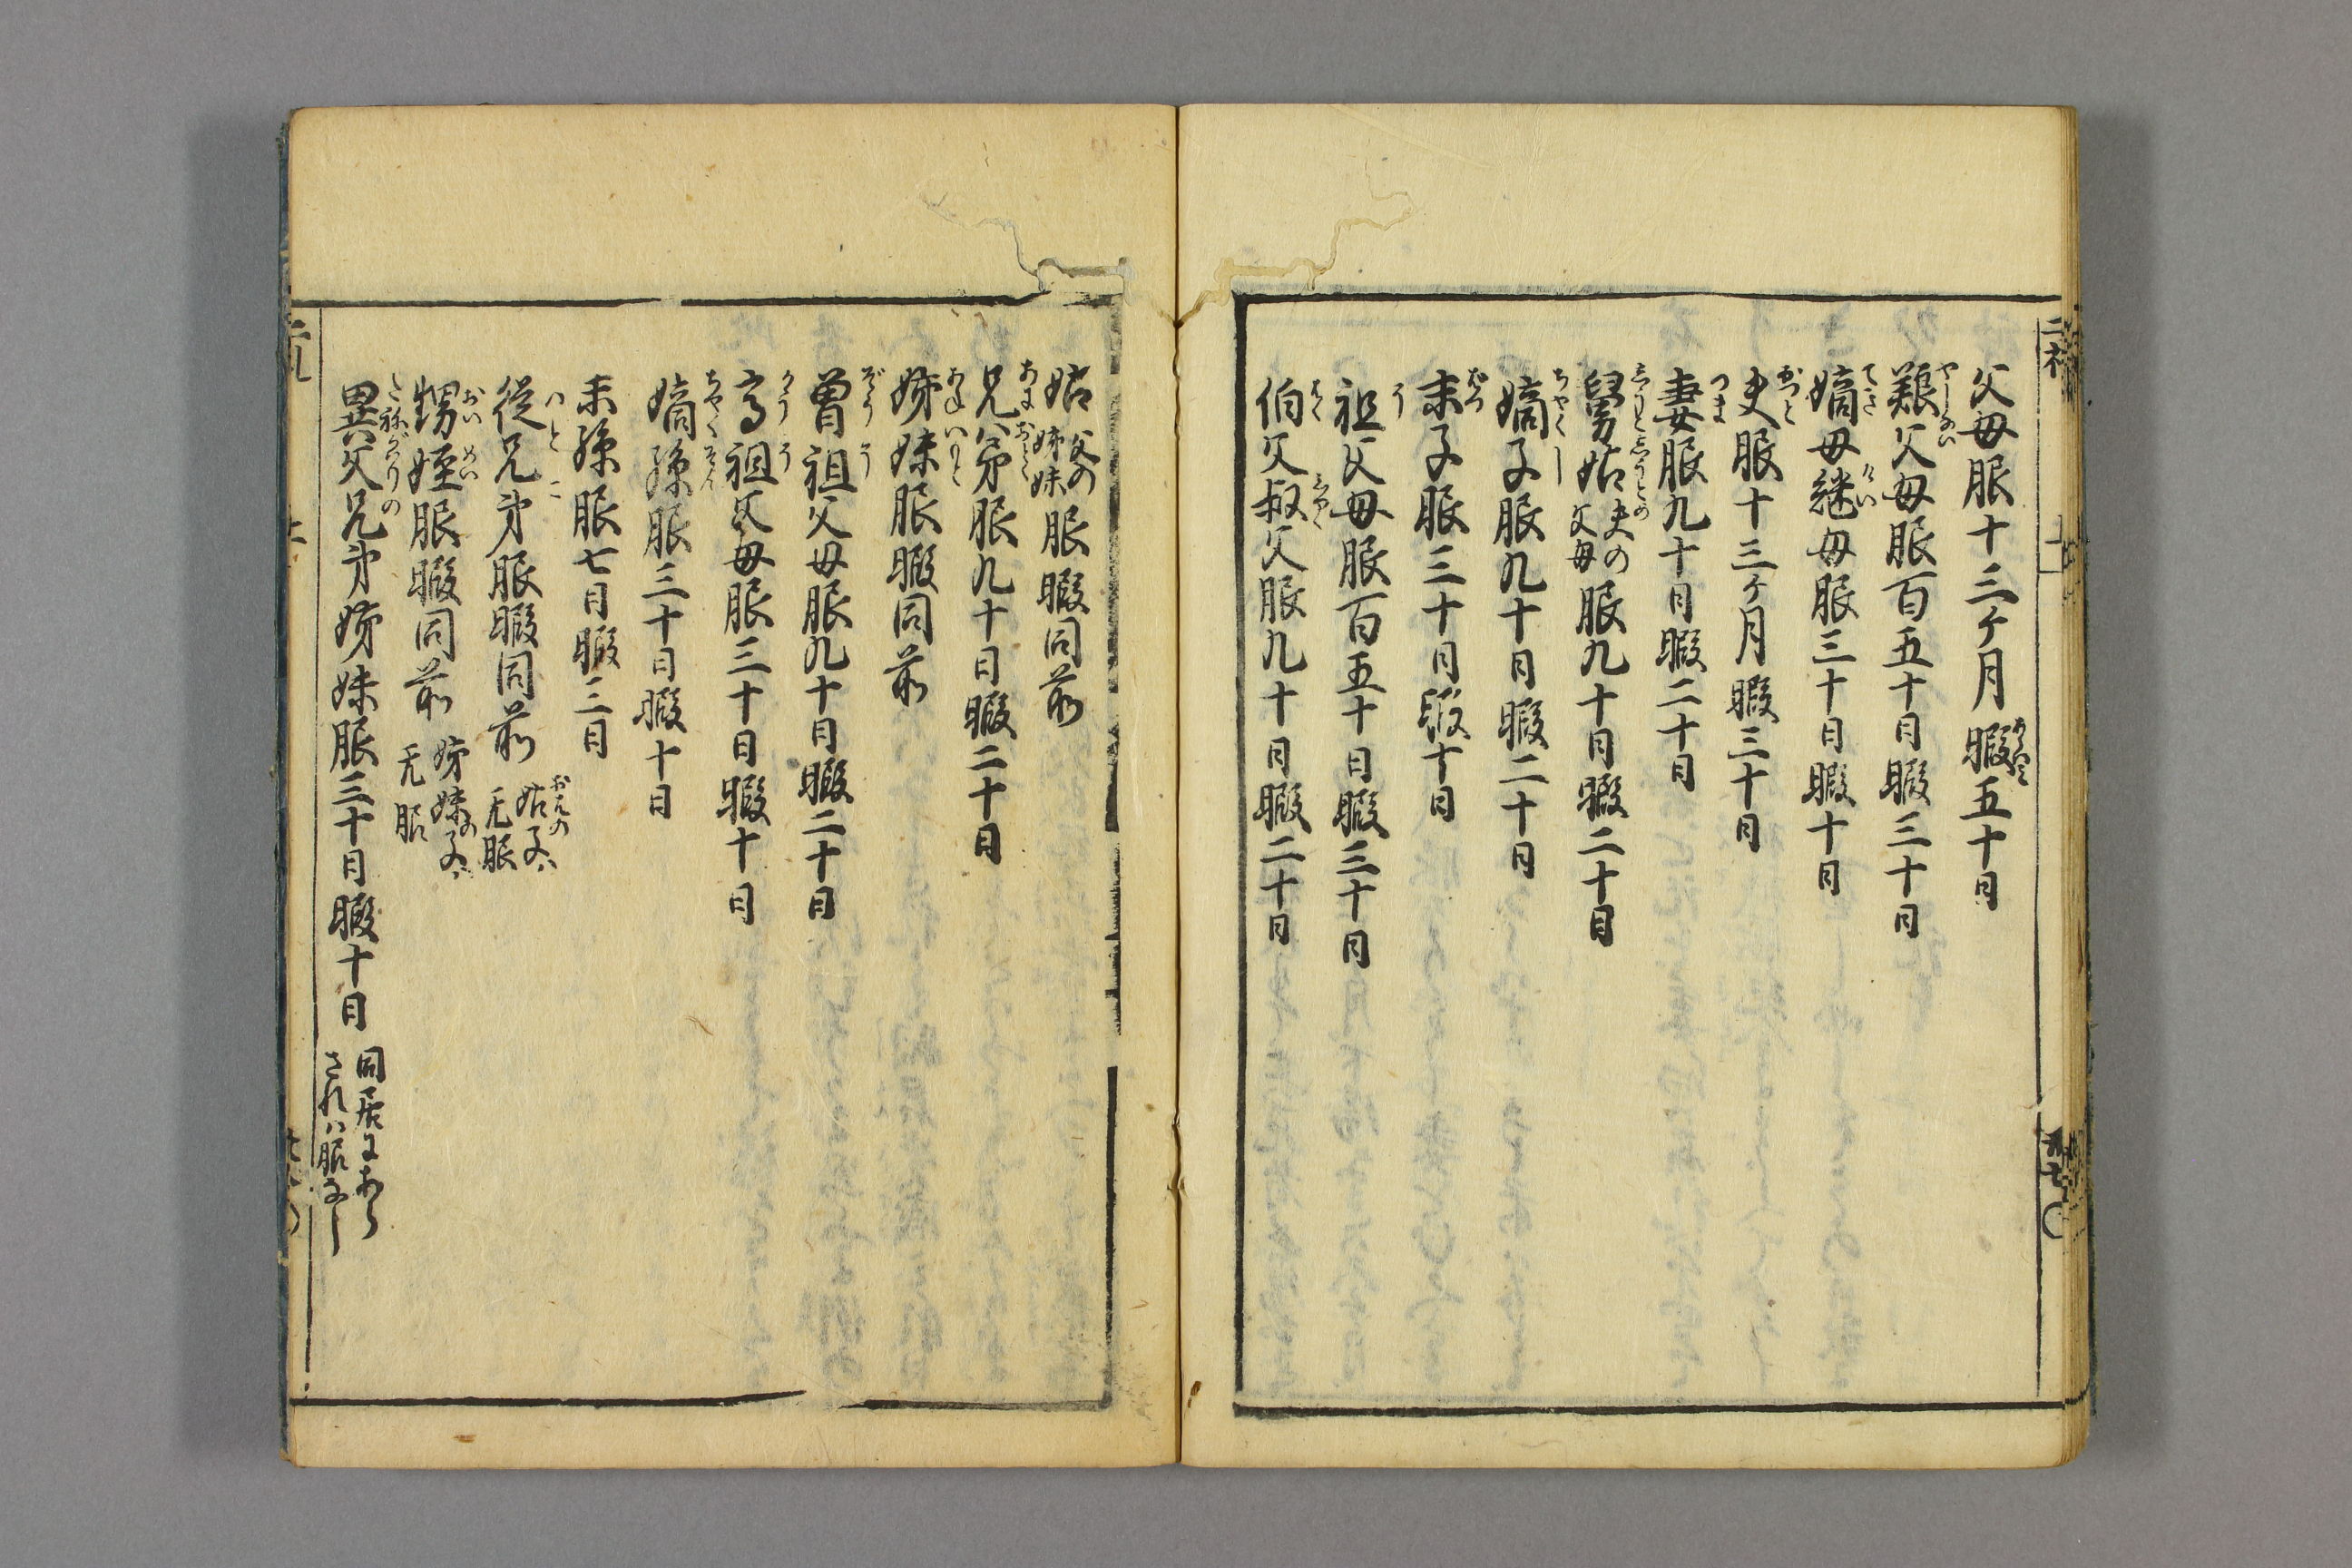 父母服十三ケ月暇五十日
養父母服百五十日暇三十日
嫡母継母服三十日暇十日
夫服十三ケ月暇三十日
妻服九十日暇二十日
舅姑夫の父母服九十日暇二十日
嫡子服九十日暇二十日
末子服三十日暇十日
祖父母服百五十日暇三十日
伯父叔父服九十日暇二十日
姑父の姉妹服暇同前
兄弟服九十日暇二十日
姉妹服暇同前
曽祖父母服九十日暇二十日
高祖父母服三十日暇十日
嫡孫服三十日暇十日
末孫服七日暇三日
従兄弟服暇同前姑の子ハ无服
甥姪服暇同前姉妹の子ハ无服
異父兄弟姉妹服三十日暇十日同居にあらされハ服なし